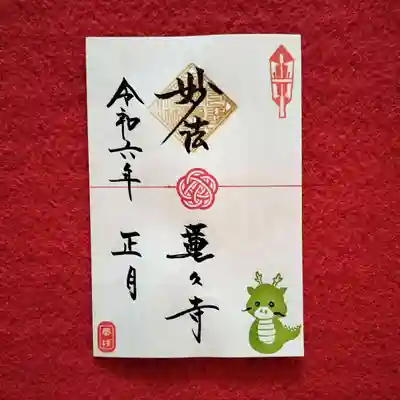 妙法
蓮久寺
令和六年
正月
奉拝